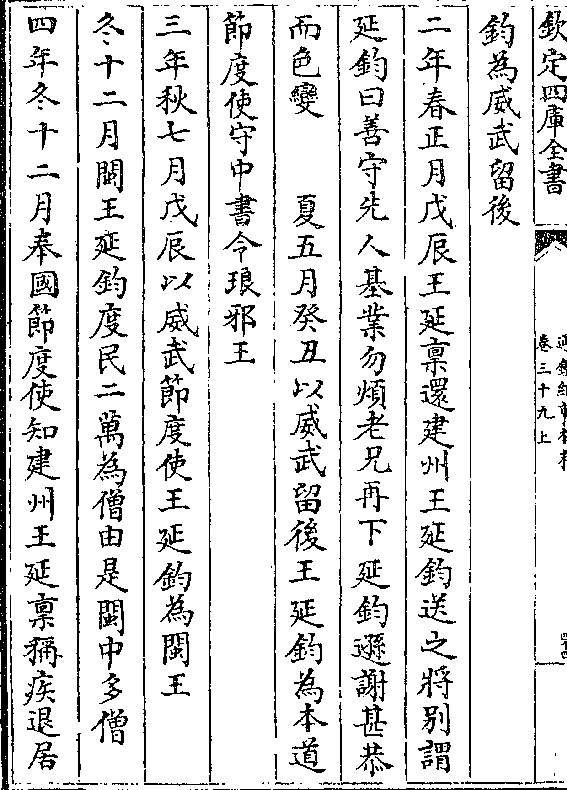 欽定四庫全書
通鑑紀事本末
卷三十九上
鈞為威武留後
二年春正月戊辰王延禀還建州王延鈞送之將別謂
延鈞曰善守先人基業勿煩老兄再下延鈞遜謝甚恭
而色變　　夏五月癸丑以威武留後王延鈞為本道
節度使守中書令琅邪王
三年秋七月戊辰以威武節度使王延鈞為閩王
冬十二月閩王延鈞度民二萬為僧由是閩中多僧
四年冬十二月奉國節度使知建州王延禀稱疾退居